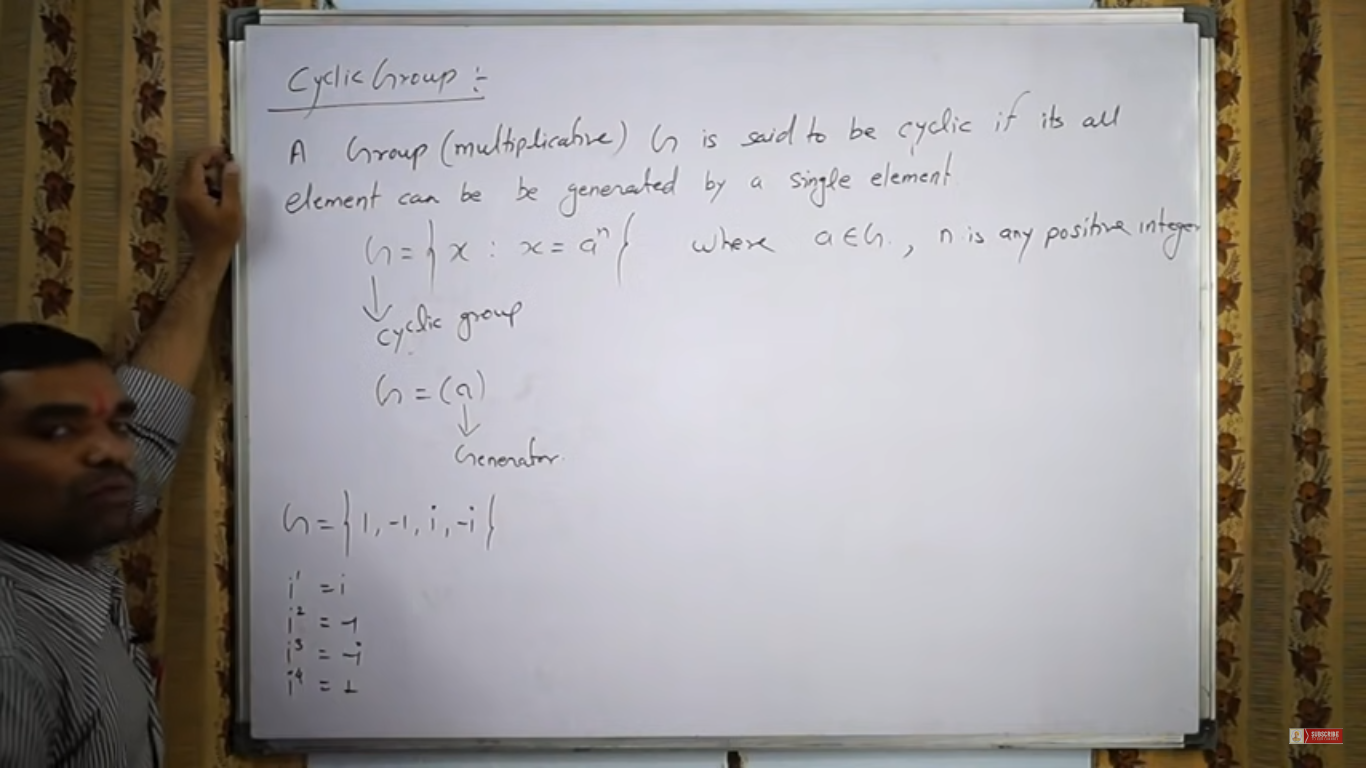 Cyclic Group :-
A Group (multiplicative) G is said to be cyclic if its all
element can be be generated by a single element
G = { x : x = aⁿ } where a ∈ G., n is any positive integer
↓
cyclic group
G = (a)
↓
Generator.
G = { 1, -1, i, -i }
i¹ = i
i² = -1
i³ = -i
i⁴ = 1
SUBSCRIBE